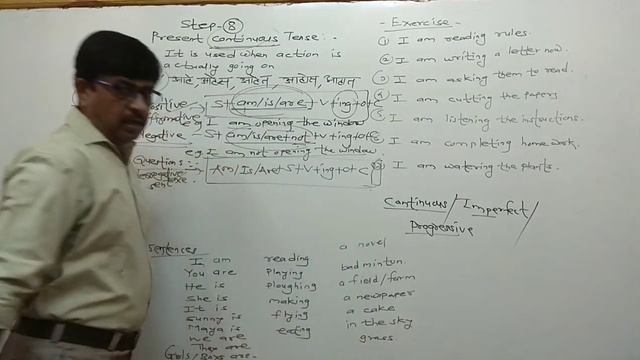 Step-8
Present Continuous Tense:-
It is used when action is
actually going on
आहे, आहेस, आहेत, आहोस, आहात
S+(am/is/are)+V+ing+O+C
e.g I am opening the window
Negative - S+am/is/are+not+V+ing+O+C
e.g I am not opening the window.
Questions:-
Am/Is/Are+S+V+ing+O+C
Sentences
I am reading a novel
You are playing badmintun.
He is ploughing a field/farm
She is making a newpaper
It is flying a cake
Sunny is eating in the sky
Maya is grass
We are
They are
Girls/Boys are-
-Exercise-
① I am reading rules.
② I am writing a letter now.
③ I am asking them to read.
④ I am cutting the papers
⑤ I am listening the instructions.
I am completing homework.
I am watering the plants.
Continuous/Imperfect/
Progressive